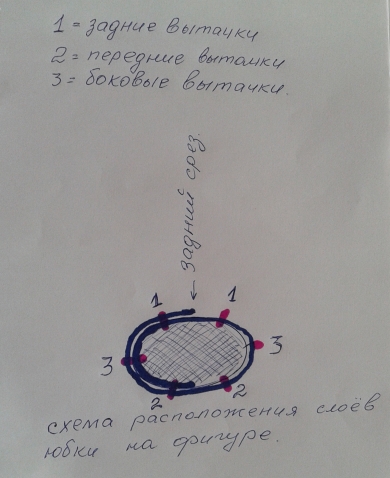 1 = задние вытачки
2 = передние вытачки
3 = боковые вытачки.
← задний срез.
1
1
3
3
2
2
схема расположения слоёв
юбки на фигуре.